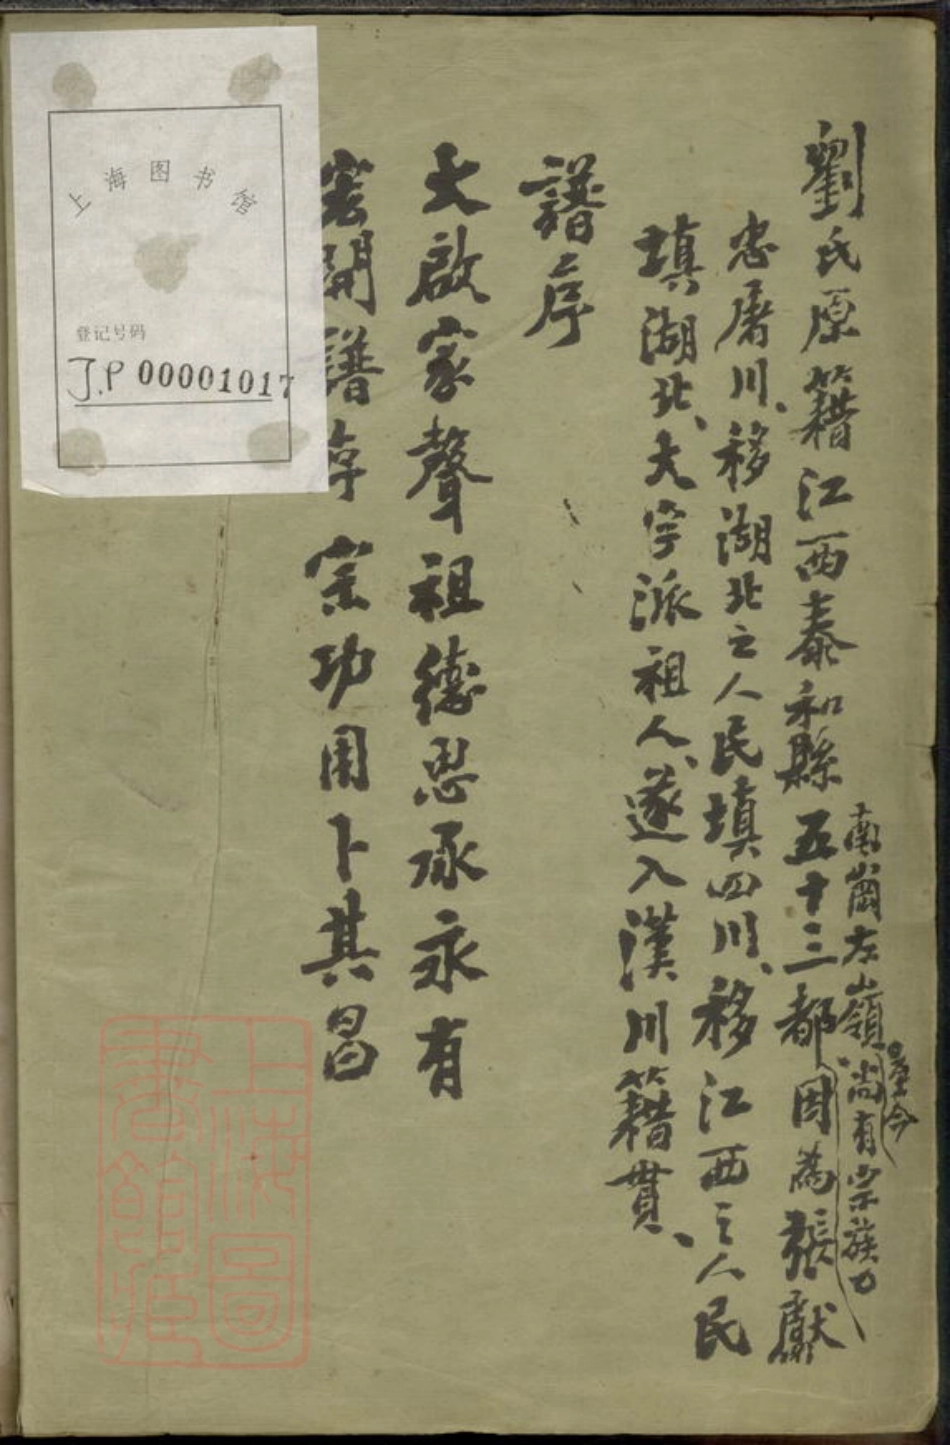 劉氏原籍江西泰和縣五十三都因為張獻
南崗左嶺尚有宗族
至今
忠屠川、移湖北之人民填四川、移江西之人民
填湖北、大字派祖人、遂入漢川籍貫、
譜序
大啟家聲祖德思承永有
開譜 宗功用卜其昌
上海图书馆
登记号码
J.P 00001017
上海圖書館藏